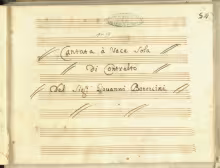 54
Cantata à Voce Sola
Di Contralto
Del Sigr. Giovanni Bononcini